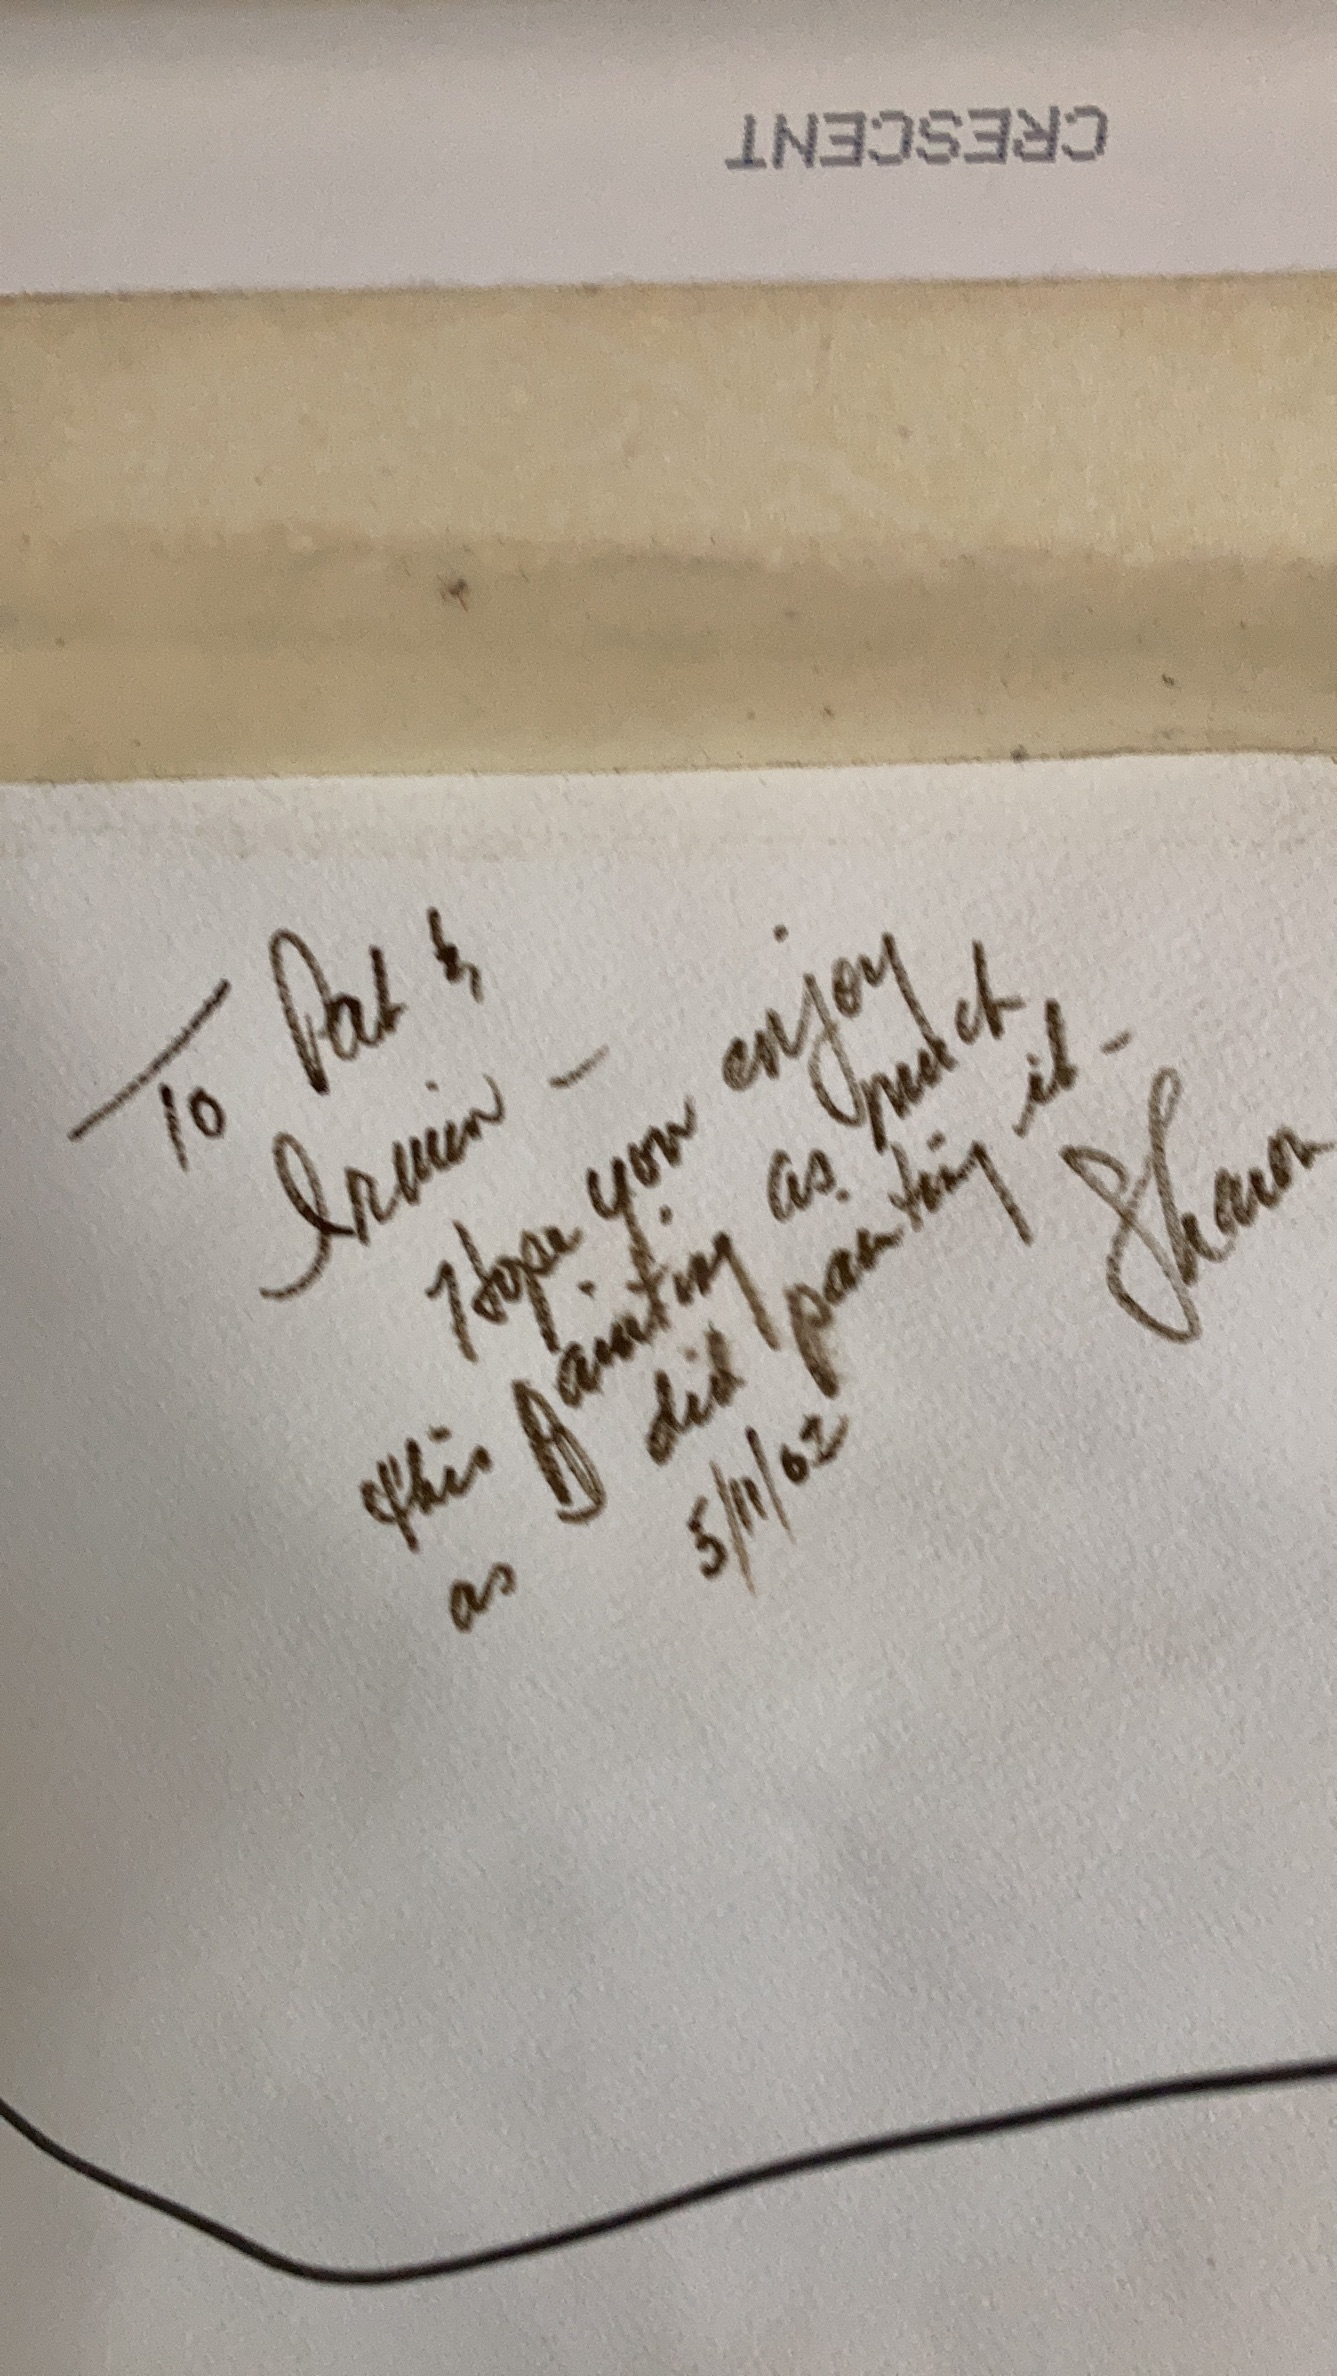 CRESCENT
To Pat &
Irwin –
Hope you enjoy
this Painting as much
as I did painting it –
5/11/02 Sharon